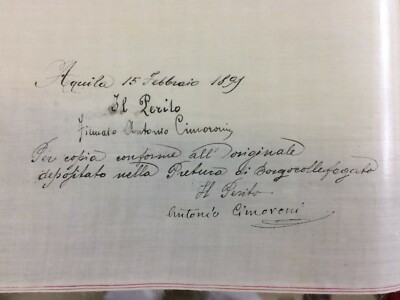 Aquila 15 Febbraio 1891
Il Perito
Firmato Antonio Cimoroni
Per copia conforme all'originale
depositato nella Pretura di Borgocollefegato
Il Perito
Antonio Cimoroni